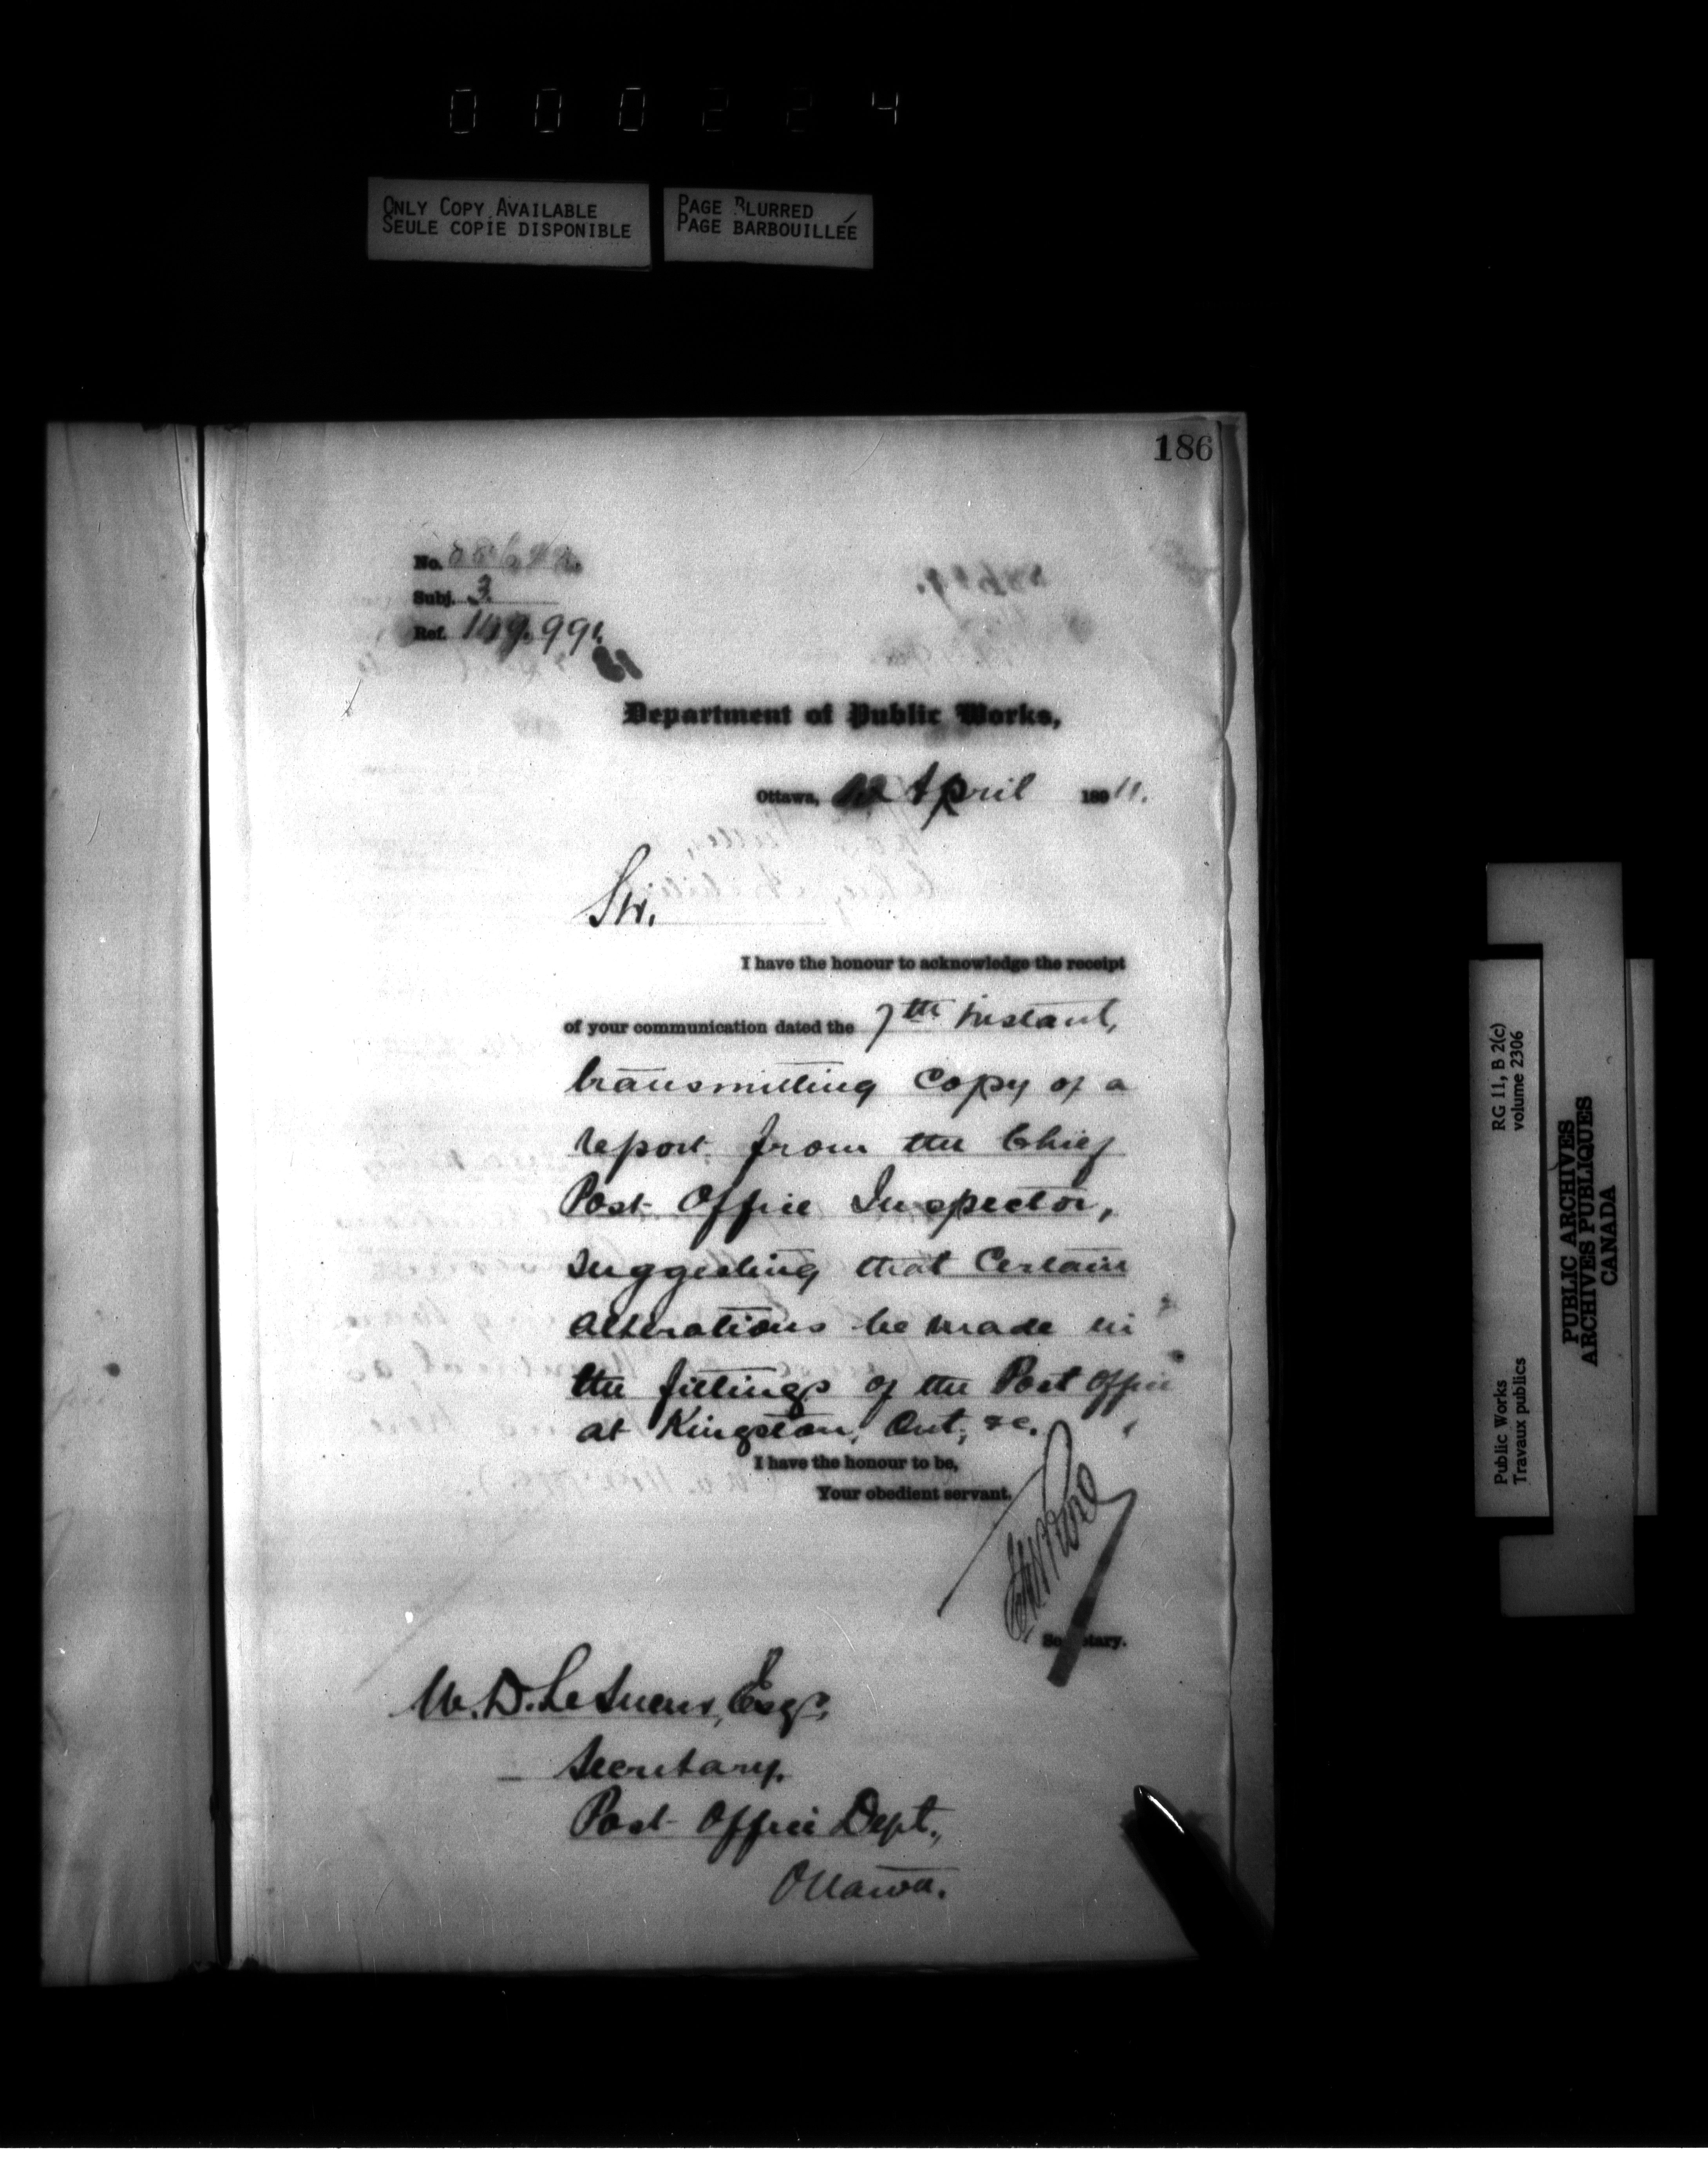 0 0 0 2 2 4
ONLY COPY AVAILABLE
SEULE COPIE DISPONIBLE
PAGE BLURRED
PAGE BARBOUILLÉE
186
No.
Subj. 3.
Ref.
Department of Public Works,
Ottawa, April 189
Sir,
I have the honour to acknowledge the receipt
of your communication dated the 7th instant,
transmitting copy of a
report from the Chief
Post Office Inspector,
suggesting that certain
alterations be made in
the fittings of the Post Office
at Kingston, Ont, &c.
I have the honour to be,
Your obedient servant.
Secretary.
W. D. LeSueur, Esq.,
Secretary.
Post Office Dept.,
Ottawa.
RG 11, B 2(c)
volume 2306
Public Works
Travaux publics
PUBLIC ARCHIVES
ARCHIVES PUBLIQUES
CANADA